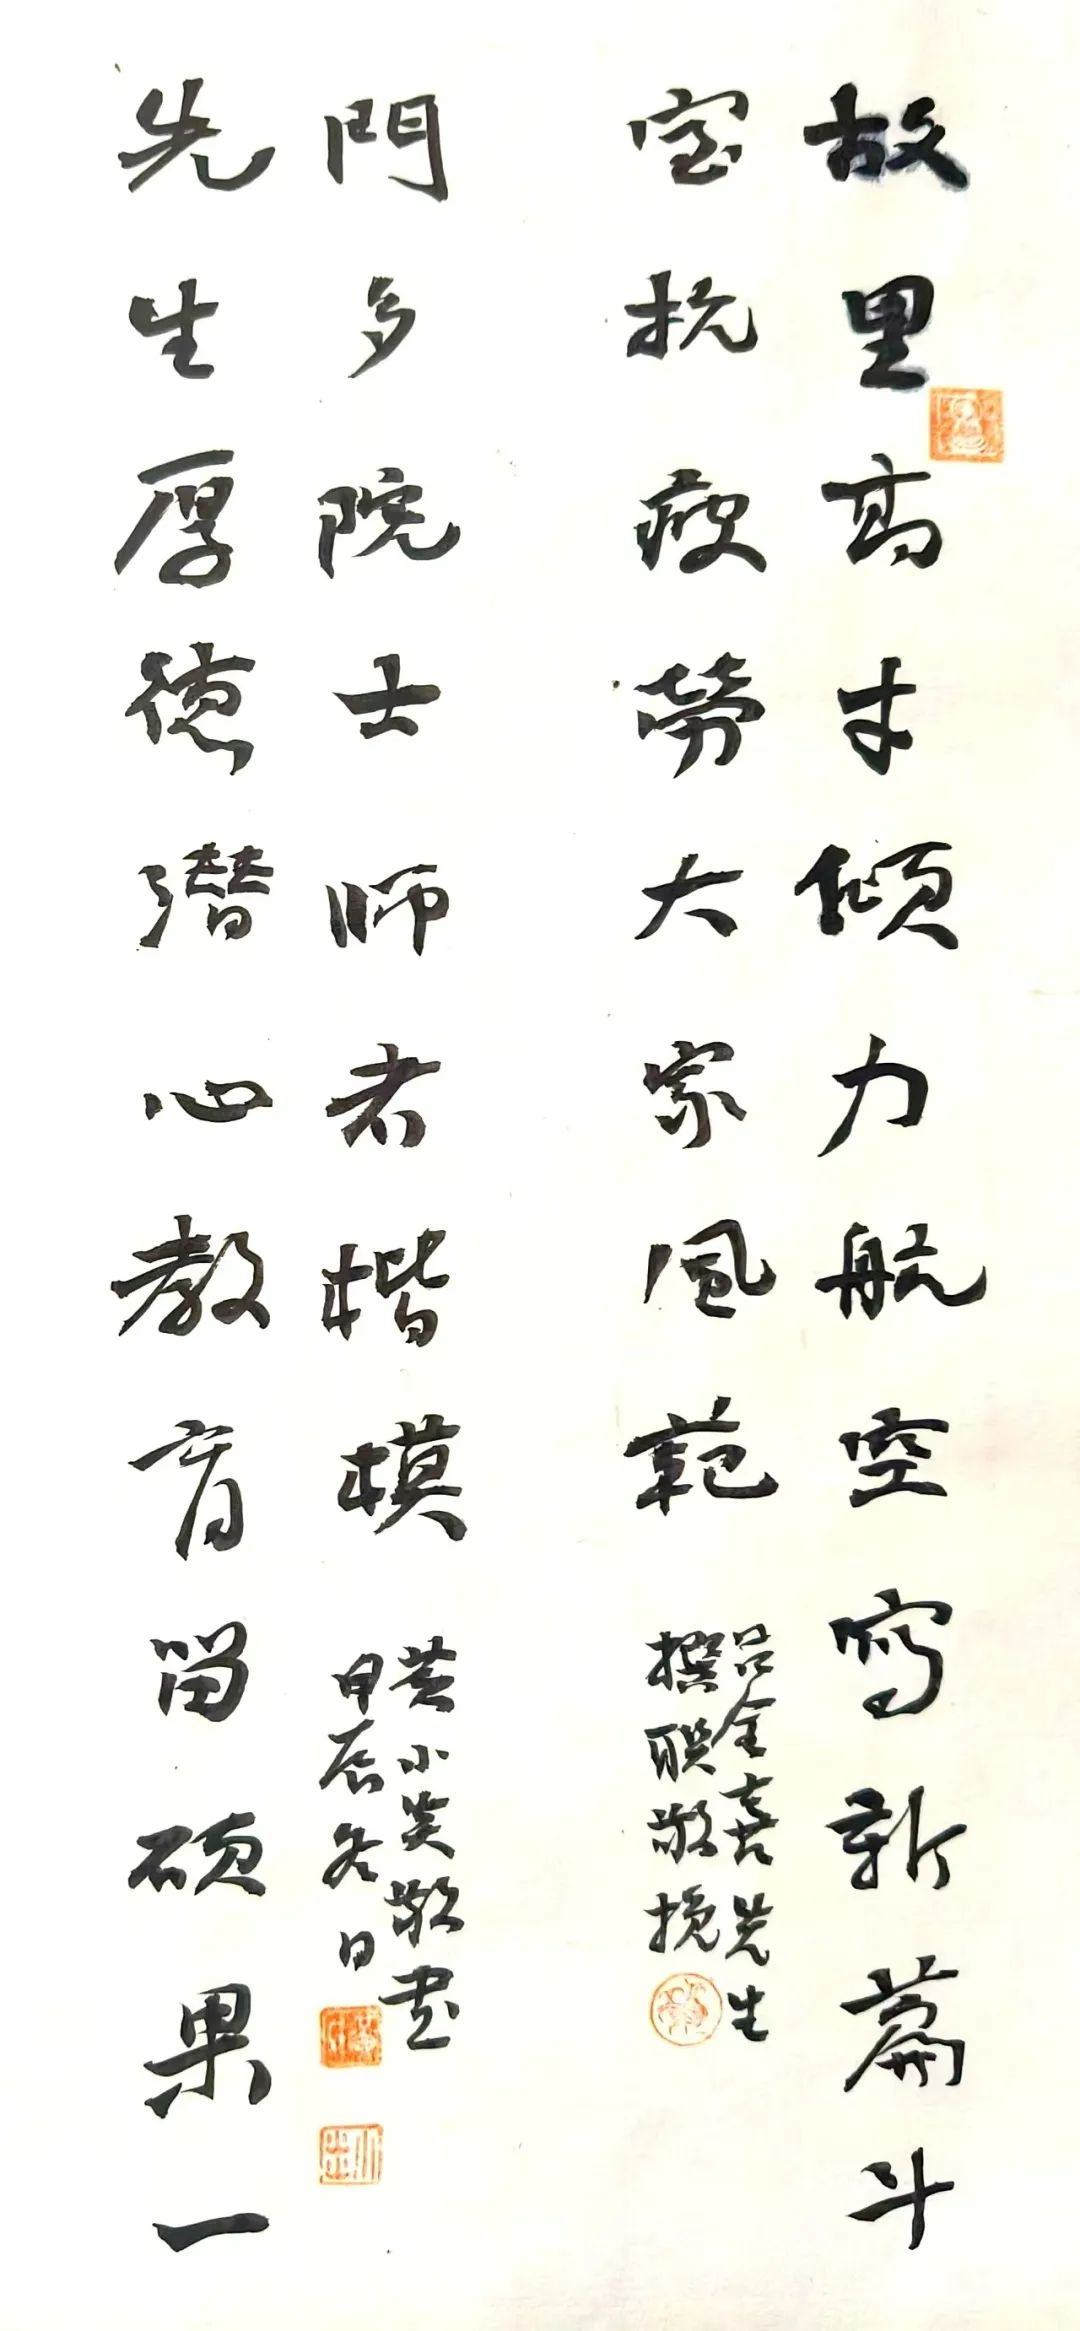 故里高才倾力航空写新篇斗
室抗疫勞大家風範
吕金喜先生
撰联敬挽
先生厚德潜心教育留硕果一
門多院士师者楷模
黄小炎敬书
甲辰冬日